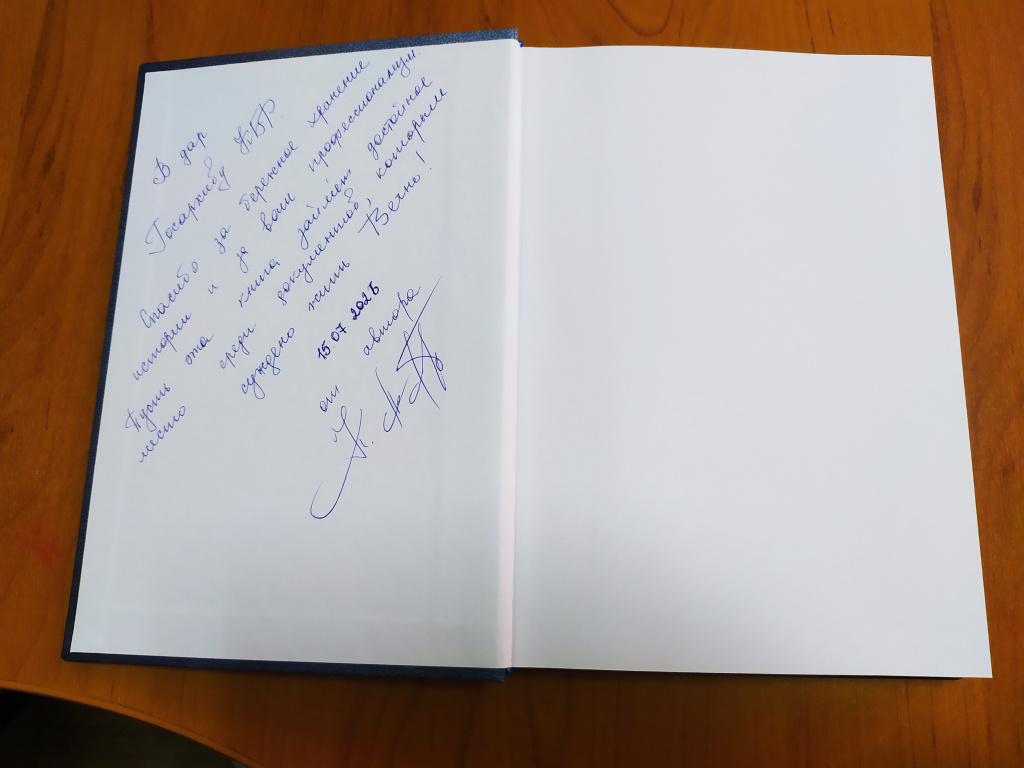 В дар
Госархиву КБР.
Спасибо за бережное хранение
истории и за ваш профессионализм.
Пусть эта книга займёт достойное
место среди документов, которым
суждено жить Вечно!
15.07.2026
от автора